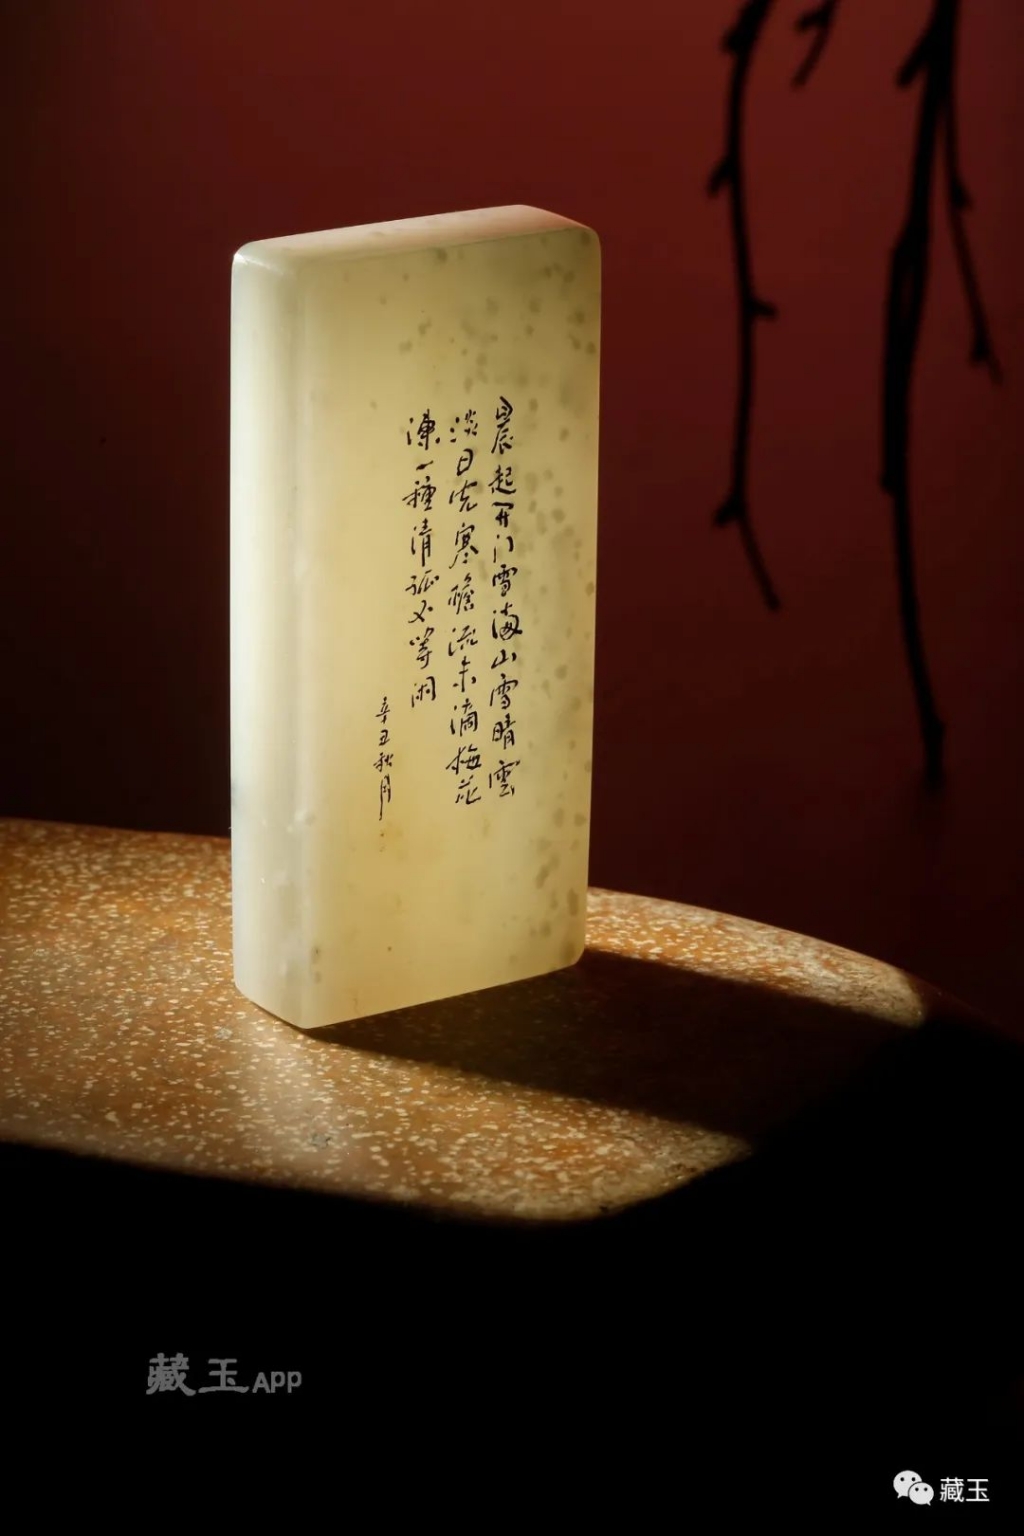 晨起开门雪满山雪晴雲
淡日光寒檐流未滴梅花
凍一種清孤不等闲
辛丑秋月
藏玉APP
藏玉